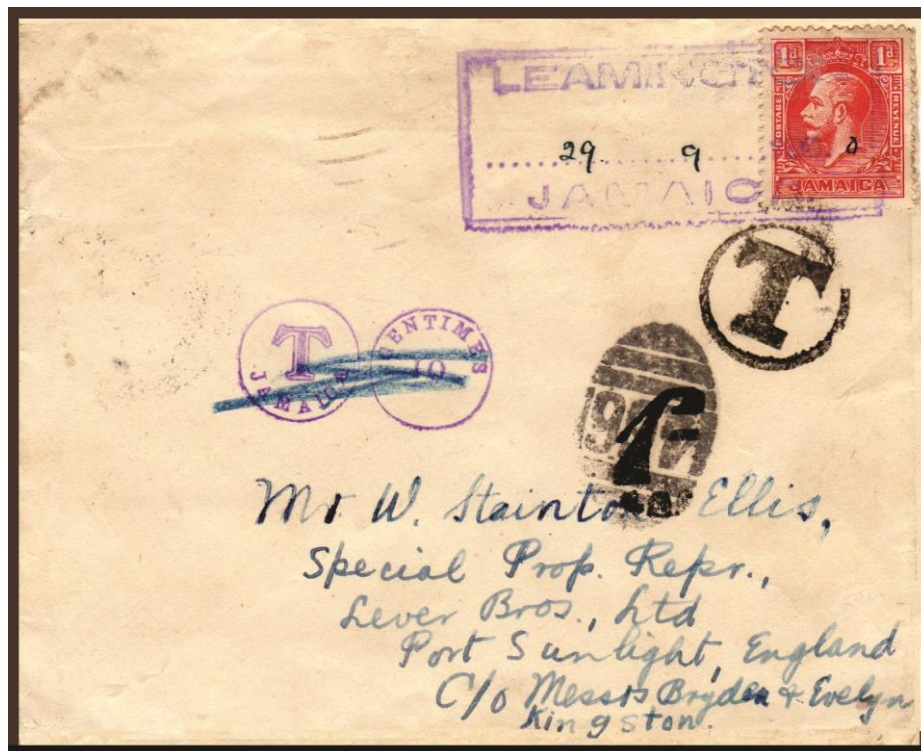 1d 1d
POSTAGE REVENUE
JAMAICA
29 9
JAMAICA
T
T
JAMAICA
CENTIMES
10
1-
Mr W. Stainton Ellis,
Special Prop. Repr.,
Lever Bros., Ltd
Port Sunlight, England
C/o Messrs Bryden & Evelyn
Kingston.